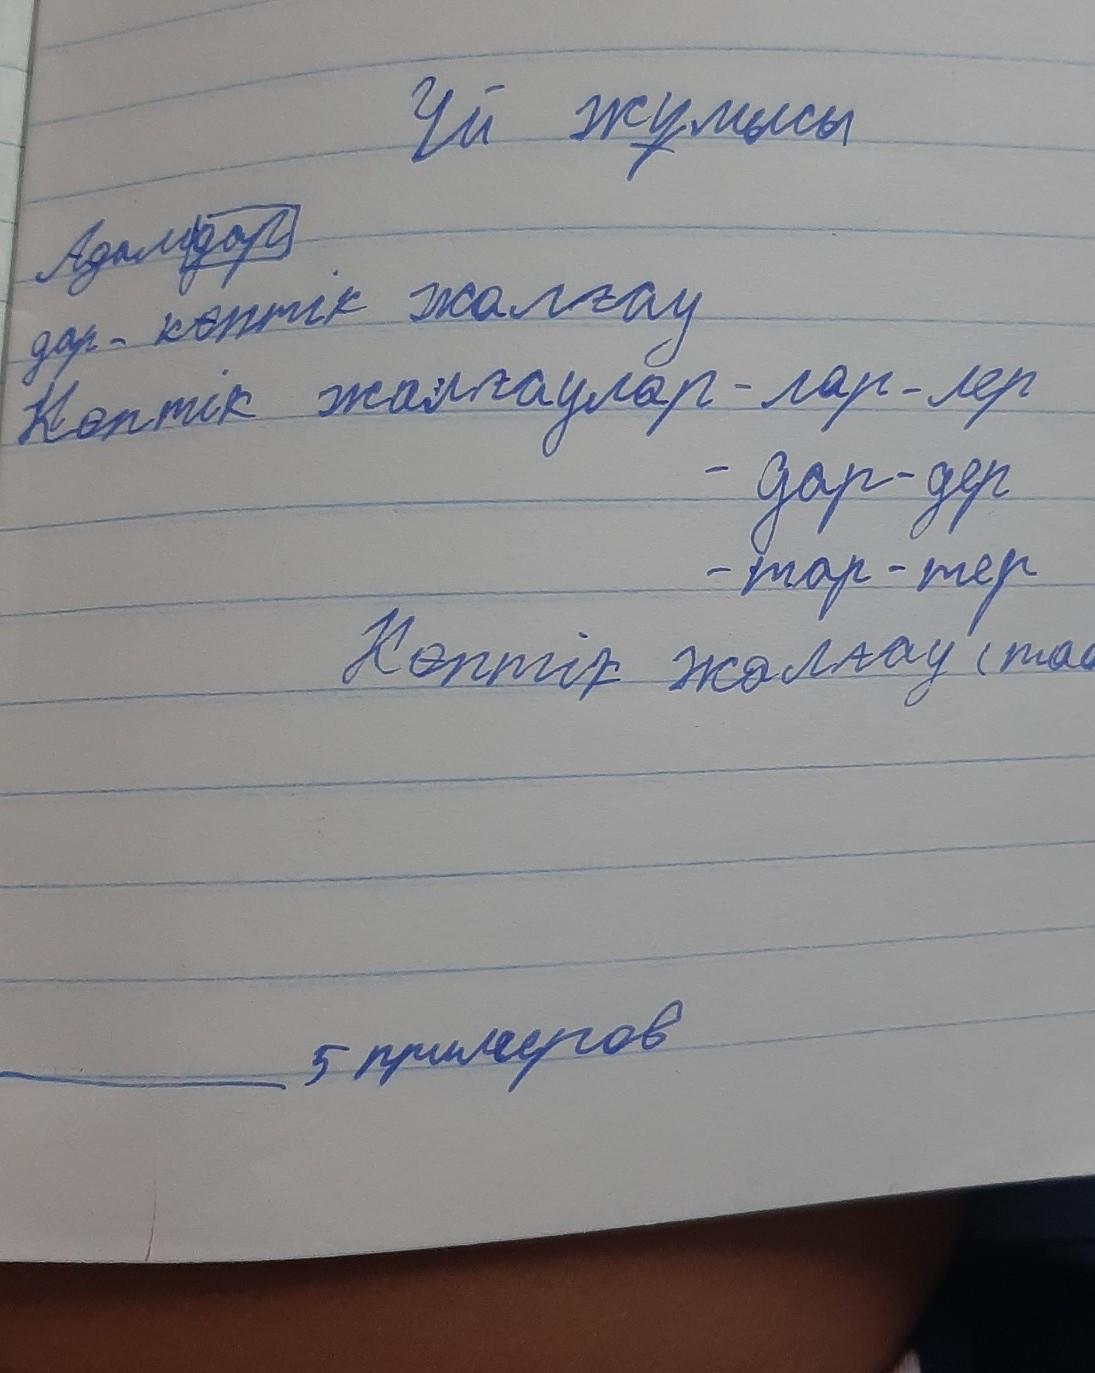 Үй жұмысы
Адамдар
дар - көптік жалғау
Көптік жалғаулар - лар - лер
- дар - дер
- тар - тер
Көптік жалғау (
5 примеров